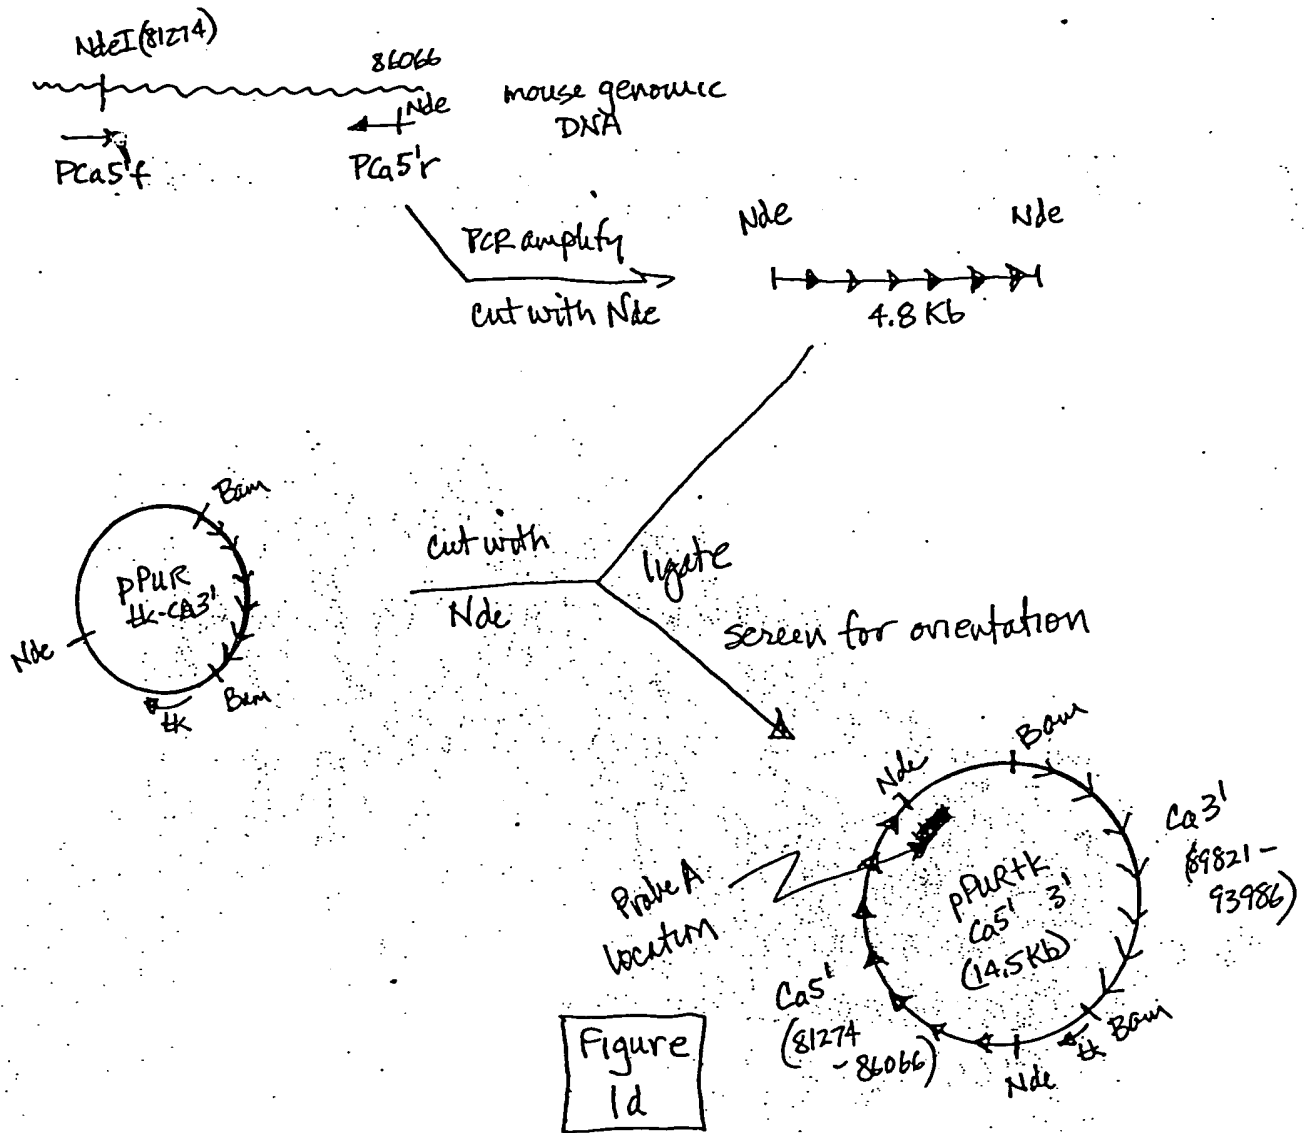 NdeI (81274)
86066
Nde
mouse genomic
DNA
PCa5'f
PCa5'r
PCR amplify
cut with Nde
Nde
Nde
4.8 Kb
Bam
pPUR
tk-CA3'
Nde
Bam
tk
cut with
Nde
ligate
screen for orientation
Nde
Bam
Ca3'
(89821-
93986)
Probe A
location
pPURtk
Ca5' 3'
(14.5Kb)
Ca5'
(81274
- 86066)
tk
Bam
Nde
Figure
1d